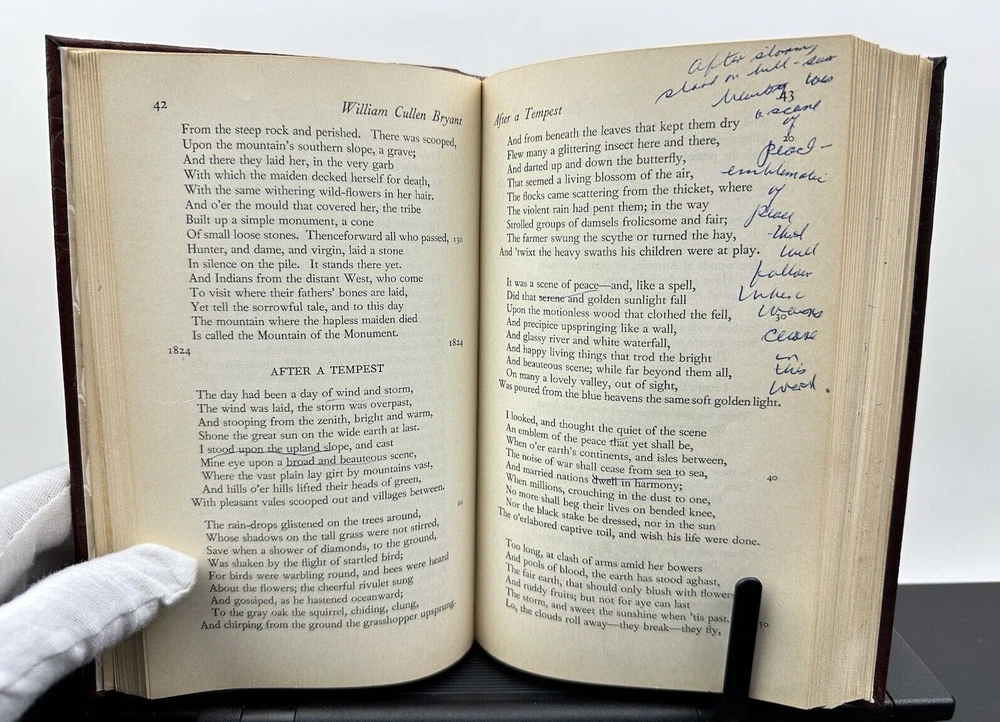 42
William Cullen Bryant
From the steep rock and perished. There was scooped,
Upon the mountain's southern slope, a grave;
And there they laid her, in the very garb
With which the maiden decked herself for death,
With the same withering wild-flowers in her hair.
And o'er the mould that covered her, the tribe
Built up a simple monument, a cone
Of small loose stones. Thenceforward all who passed, 130
Hunter, and dame, and virgin, laid a stone
In silence on the pile. It stands there yet.
And Indians from the distant West, who come
To visit where their fathers' bones are laid,
Yet tell the sorrowful tale, and to this day
The mountain where the hapless maiden died
Is called the Mountain of the Monument.
1824 1824
AFTER A TEMPEST
The day had been a day of wind and storm,
The wind was laid, the storm was overpast,
And stooping from the zenith, bright and warm,
Shone the great sun on the wide earth at last.
I stood upon the upland slope, and cast
Mine eye upon a broad and beauteous scene,
Where the vast plain lay girt by mountains vast,
And hills o'er hills lifted their heads of green,
With pleasant vales scooped out and villages between.
10
The rain-drops glistened on the trees around,
Whose shadows on the tall grass were not stirred,
Save when a shower of diamonds, to the ground,
Was shaken by the flight of startled bird;
For birds were warbling round, and bees were heard
About the flowers; the cheerful rivulet sung
And gossiped, as he hastened oceanward;
To the gray oak the squirrel, chiding, clung,
And chirping from the ground the grasshopper upsprung.
After a Tempest
43
And from beneath the leaves that kept them dry
Flew many a glittering insect here and there, 20
And darted up and down the butterfly,
That seemed a living blossom of the air,
The flocks came scattering from the thicket, where
The violent rain had pent them; in the way
Strolled groups of damsels frolicsome and fair;
The farmer swung the scythe or turned the hay,
And 'twixt the heavy swaths his children were at play.
It was a scene of peace—and, like a spell,
Did that serene and golden sunlight fall
Upon the motionless wood that clothed the fell, 30
And precipice upspringing like a wall,
And glassy river and white waterfall,
And happy living things that trod the bright
And beauteous scene; while far beyond them all,
On many a lovely valley, out of sight,
Was poured from the blue heavens the same soft golden light.
I looked, and thought the quiet of the scene
An emblem of the peace that yet shall be,
When o'er earth's continents, and isles between,
The noise of war shall cease from sea to sea, 40
And married nations dwell in harmony;
When millions, crouching in the dust to one,
No more shall beg their lives on bended knee,
Nor the black stake be dressed, nor in the sun
The o'erlabored captive toil, and wish his life were done.
Too long, at clash of arms amid her bowers
And pools of blood, the earth has stood aghast,
The fair earth, that should only blush with flowers
And ruddy fruits; but not for aye can last
The storm, and sweet the sunshine when 'tis past. 50
Lo, the clouds roll away—they break—they fly,
After storm,
stood on hill-
was
a scene
of
peace-
emblematic
of
peace
that
will
follow
when
cease
in
this